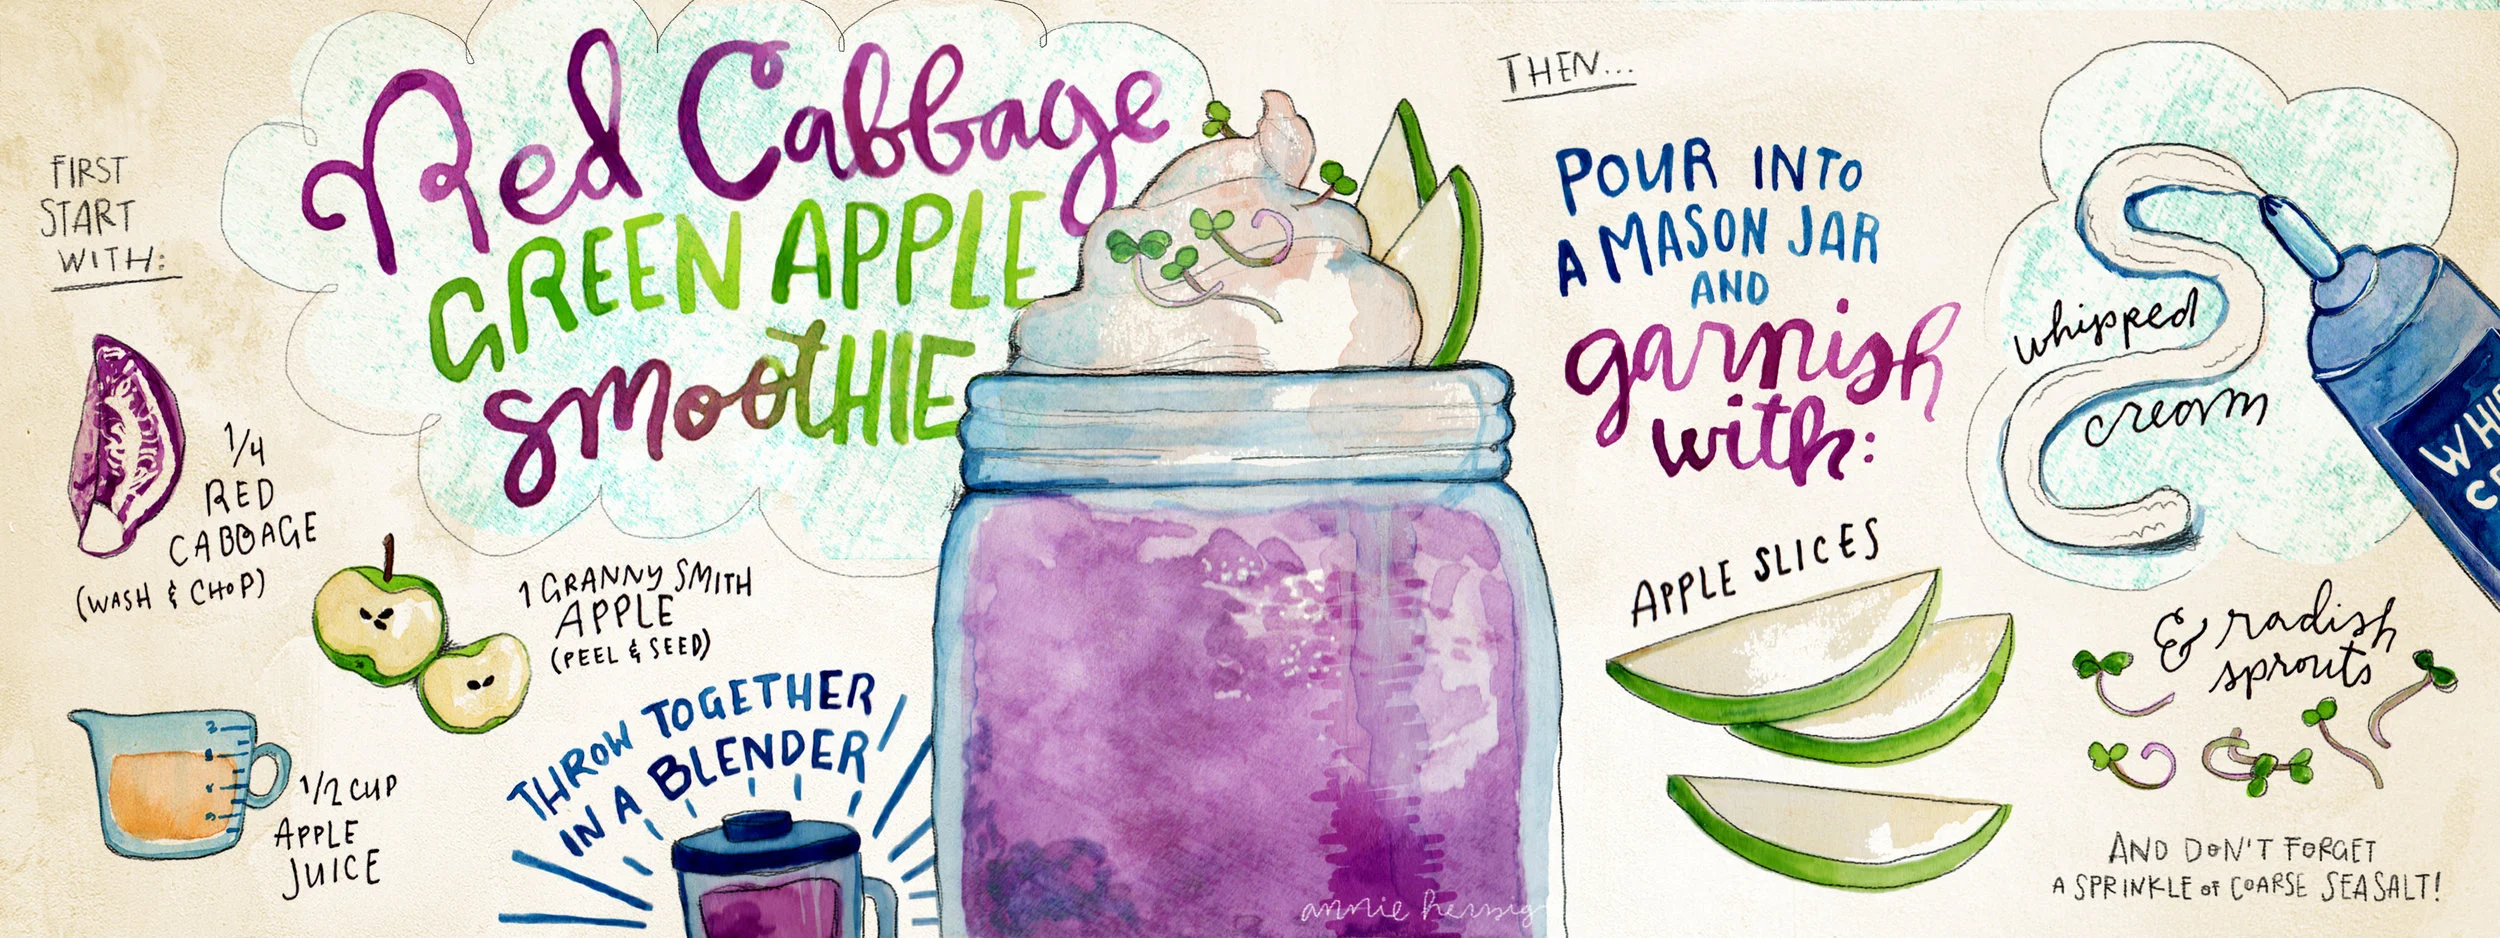 Red Cabbage
GREEN APPLE
smooTHIE
FIRST
START
WITH:
1/4
RED
CABBAGE
(WASH & CHOP)
1 GRANNY SMITH
APPLE
(PEEL & SEED)
1/2 CUP
APPLE
JUICE
THROW TOGETHER
IN A BLENDER
THEN...
POUR INTO
A MASON JAR
AND
garnish
with:
whipped
cream
APPLE SLICES
& radish
sprouts
AND DON'T FORGET
A SPRINKLE of COARSE SEASALT!
annie